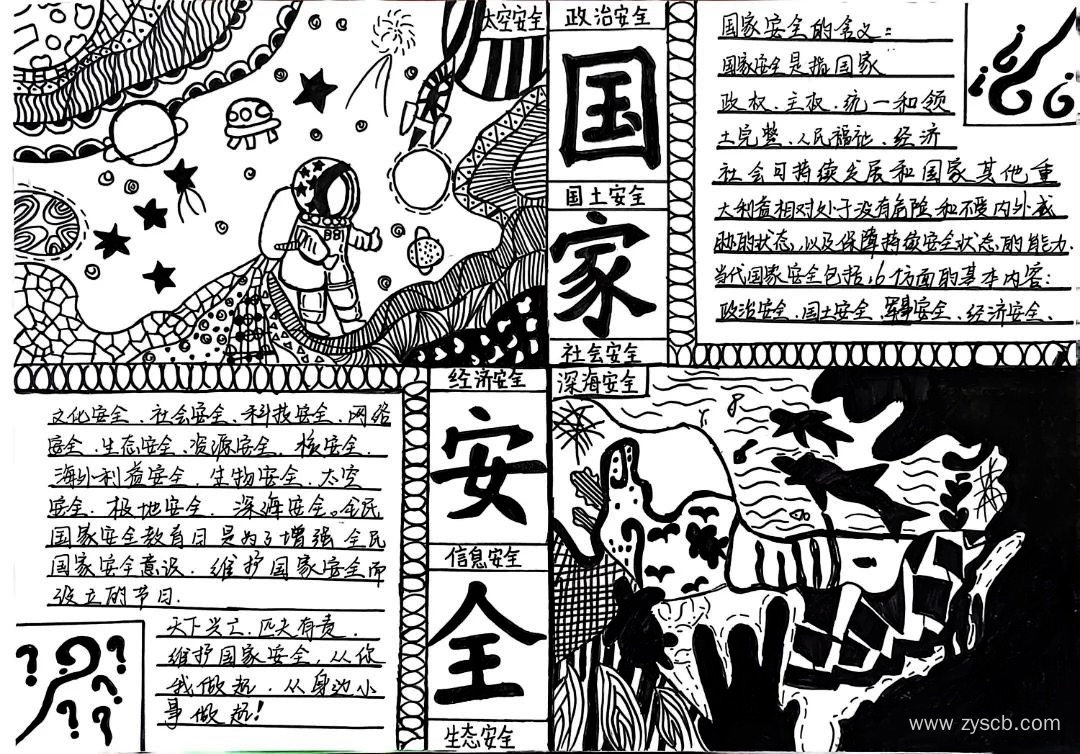 太空安全
政治安全
国
国土安全
家
社会安全
国家安全的含义:
国家安全是指国家
政权、主权、统一和领
土完整、人民福祉、经济
社会可持续发展和国家其他重
大利益相对处于没有危险和不受内外威
胁的状态,以及保障持续安全状态的能力.
当代国家安全包括16方面的基本内容:
政治安全、国土安全、军事安全、经济安全、
文化安全、社会安全、科技安全、网络
安全、生态安全、资源安全、核安全、
海外利益安全、生物安全、太空
安全、极地安全、深海安全。全民
国家安全教育日是为了增强全民
国家安全意识,维护国家安全而
设立的节日.
天下兴亡,匹夫有责,
维护国家安全,从你
我做起,从身边小
事做起!
经济安全
安
信息安全
全
生态安全
深海安全
www.zyscb.com